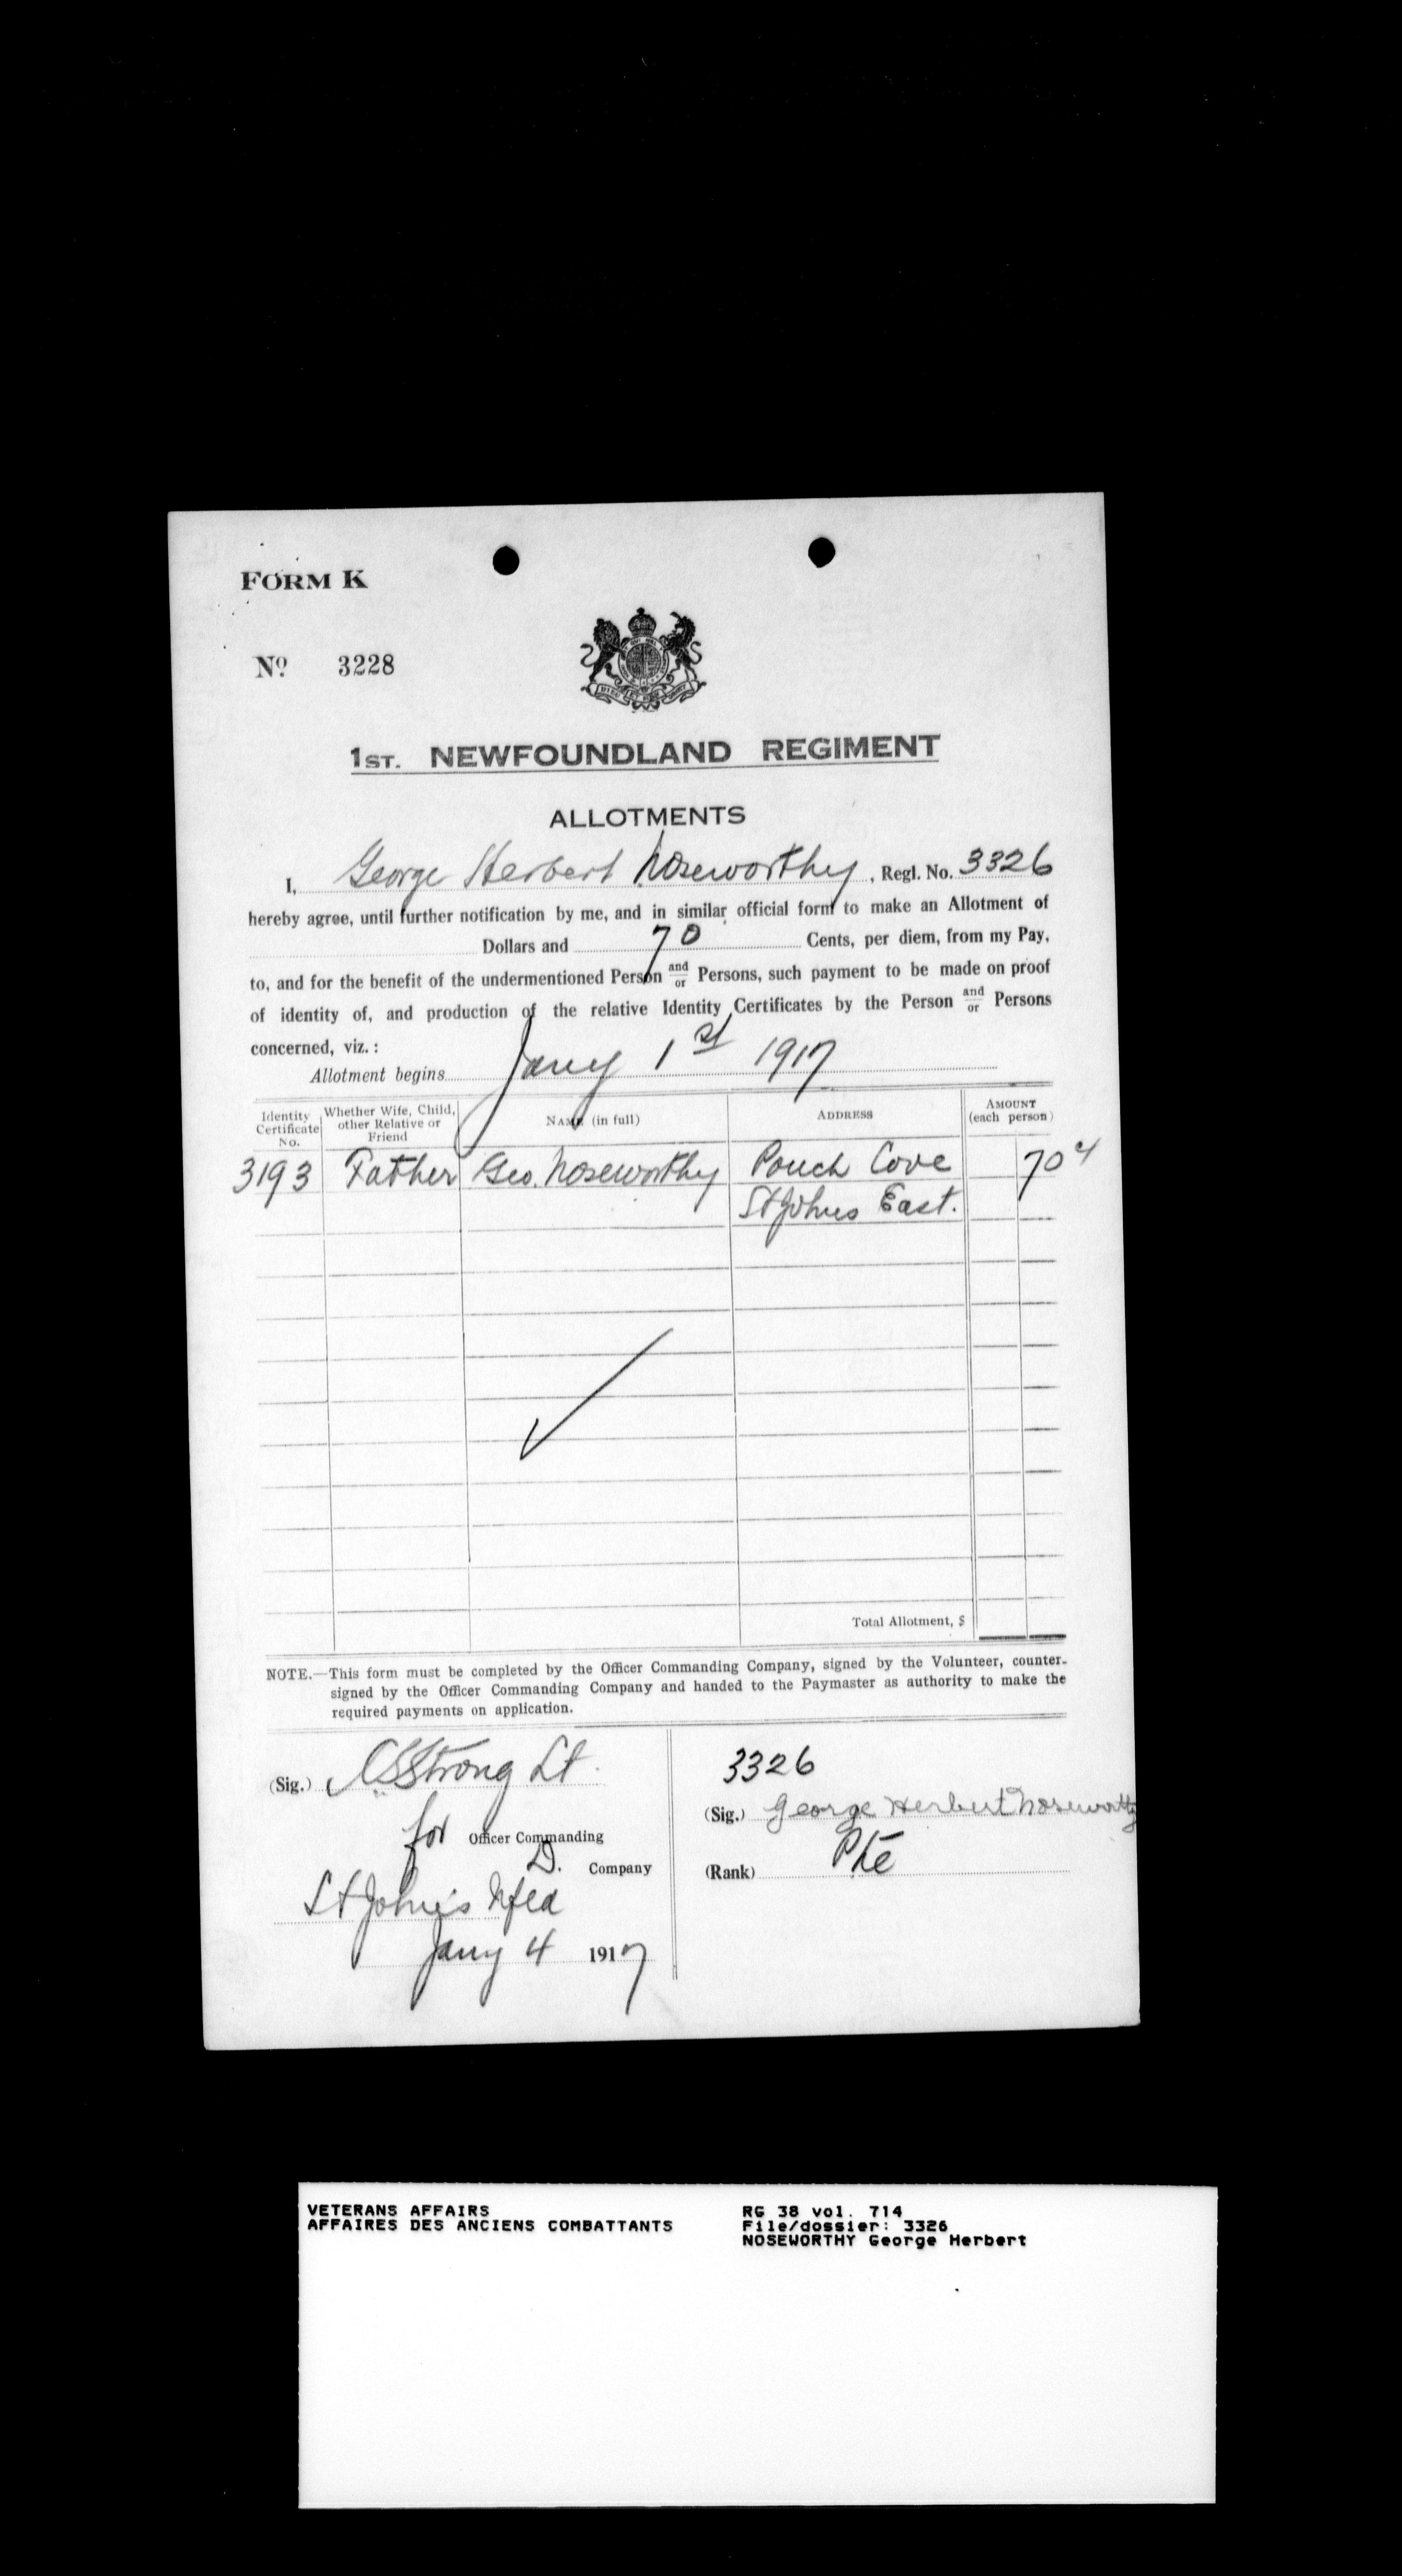 FORM K
No. 3228
1ST. NEWFOUNDLAND REGIMENT
ALLOTMENTS
I, George Herbert Noseworthy, Regl. No. 3326
hereby agree, until further notification by me, and in similar official form to make an Allotment of
Dollars and 70 Cents, per diem, from my Pay,
to, and for the benefit of the undermentioned Person and/or Persons, such payment to be made on proof
of identity of, and production of the relative Identity Certificates by the Person and/or Persons
concerned, viz.:
Allotment begins Jany 1st 1917
Identity Certificate No. Whether Wife, Child, other Relative or Friend NAME (in full) ADDRESS AMOUNT (each person)
3193 Father Geo. Noseworthy Pouch Cove 70 ¢
St Johns East.
Total Allotment, $
NOTE.—This form must be completed by the Officer Commanding Company, signed by the Volunteer, counter-
signed by the Officer Commanding Company and handed to the Paymaster as authority to make the
required payments on application.
(Sig.) CSStrong Lt.
for Officer Commanding
D. Company
St John's Nfld
Jany 4 1917
3326
(Sig.) George Herbert Noseworthy
(Rank) Pte
VETERANS AFFAIRS
AFFAIRES DES ANCIENS COMBATTANTS
RG 38 vol. 714
File/dossier: 3326
NOSEWORTHY George Herbert